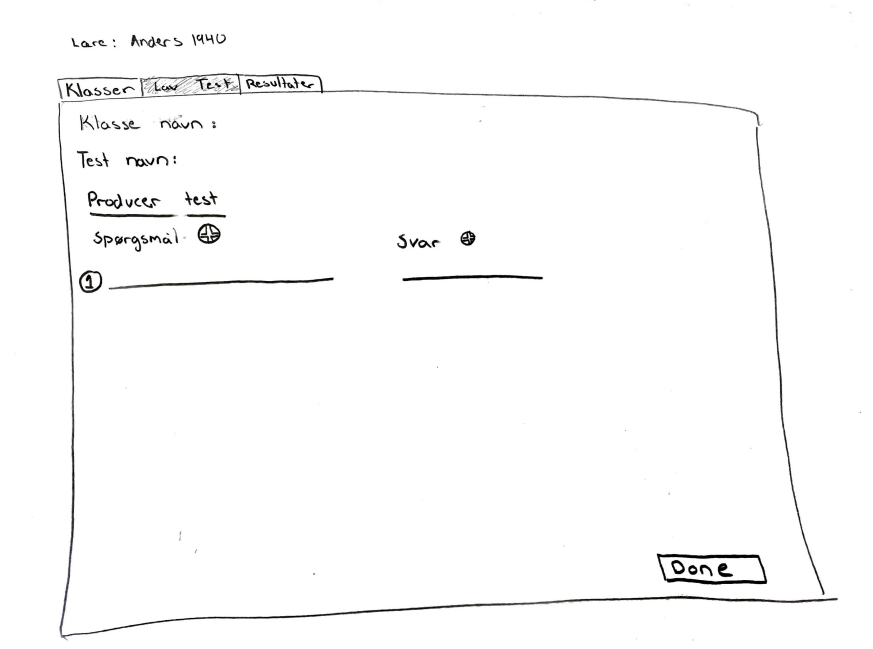 Lære: Anders 1940
Klasser Lav Test Resultater
Klasse navn:
Test navn:
Producer test
Spørgsmål Svar
1
Done